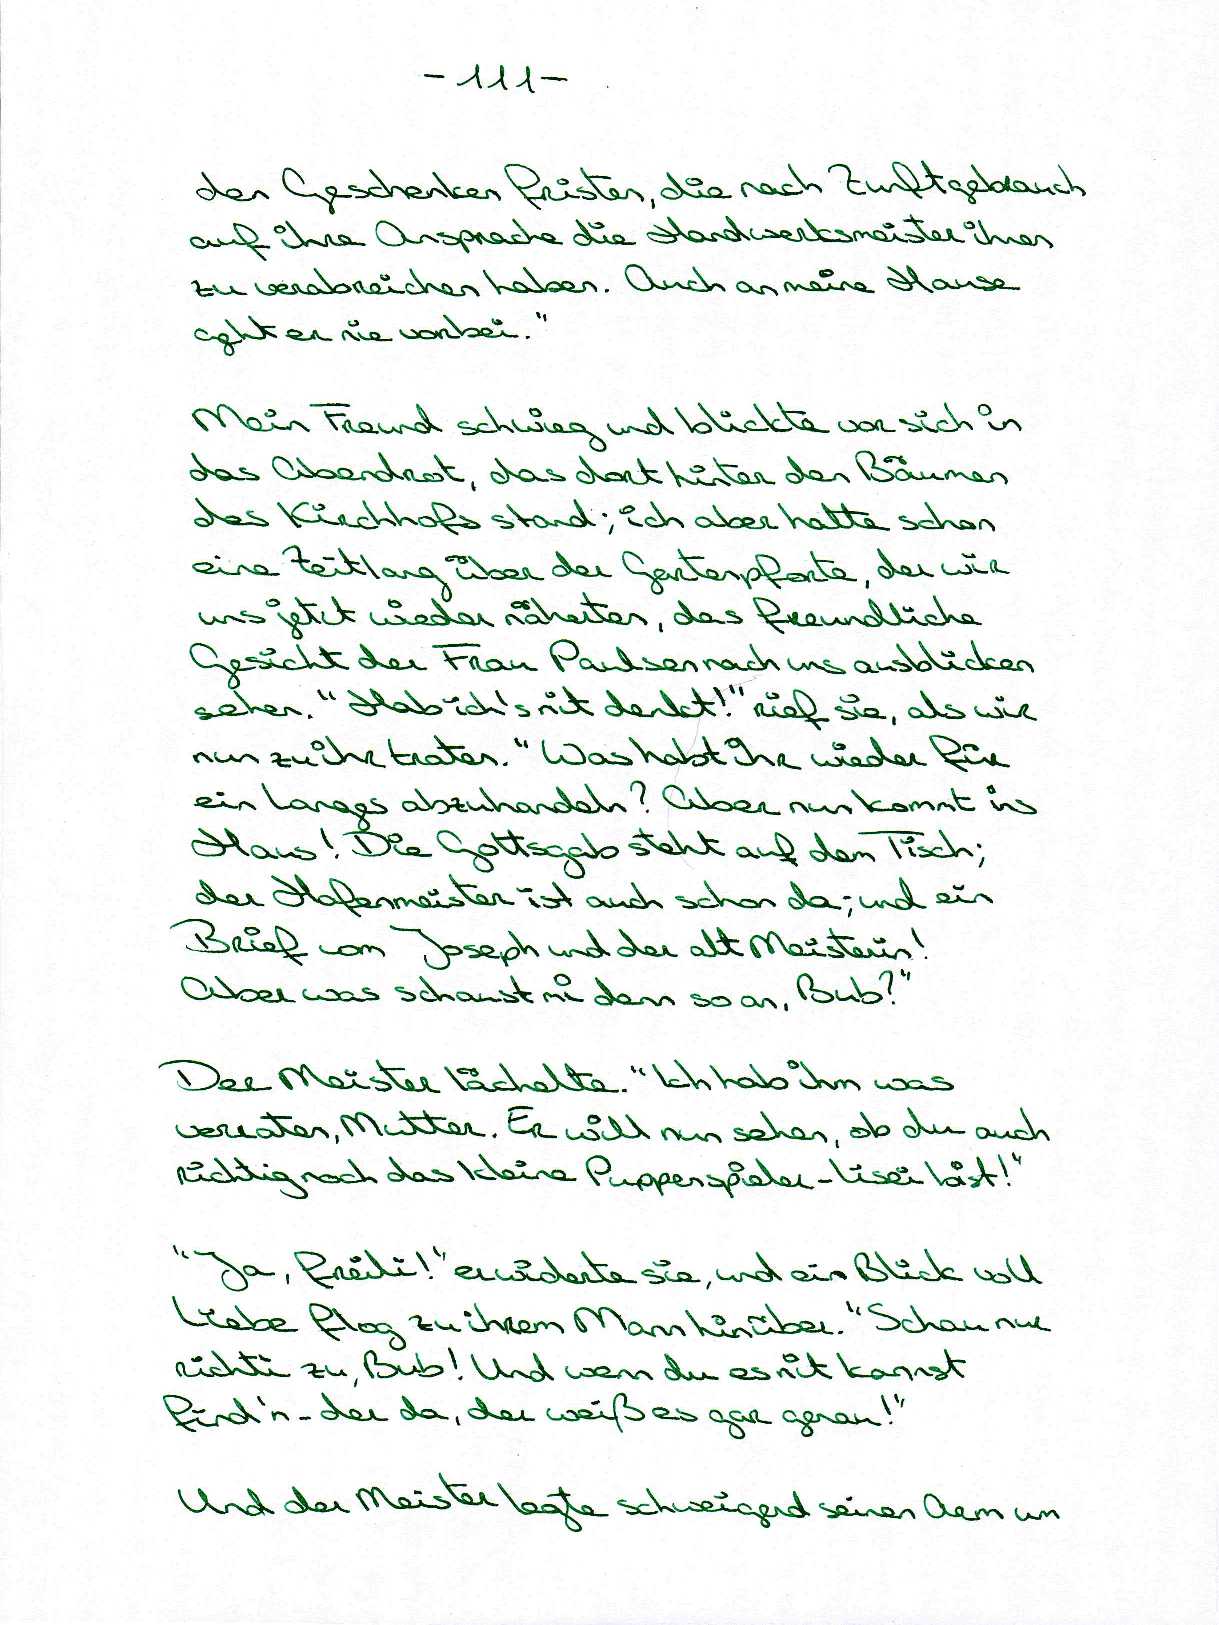 - 111 -
den Geschenken fristen, die nach Zunftgebrauch
auf ihre Ansprache die Handwerksmeister ihnen
zu verabreichen haben. Auch an meine Hause
geht er nie vorbei."
Mein Freund schwieg und blickte vor sich in
das Abendrot, das dort hinter den Bäumen
des Kirchhofs stand; ich aber hatte schon
eine Zeitlang über der Gartenpforte, der wir
uns jetzt wieder näherten, das freundliche
Gesicht der Frau Paulsen nach uns ausblicken
sehen. "Hab ich's nit denkt!" rief sie, als wir
nun zu ihr traten. "Was habt ihr wieder für
ein Langes abzuhandeln? Aber nun kommt ins
Haus! Die Gottsgab steht auf dem Tisch;
der Hafenmeister ist auch schon da; und ein
Brief vom Joseph und der alt Meisterin!
Aber was schaust mi denn so an, Bub?"
Der Meister lächelte. "Ich hab ihm was
verraten, Mutter. Er will nun sehen, ob du auch
richtig noch das kleine Puppenspieler-Lisei bist!"
"Ja, freili!" erwiderte sie, und ein Blick voll
Liebe flog zu ihrem Mann hinüber. "Schau nur
richti zu, Bub! Und wenn du es nit kannst
find'n - der da, der weiß es gar genau!"
Und der Meister legte schweigend seinen Arm um